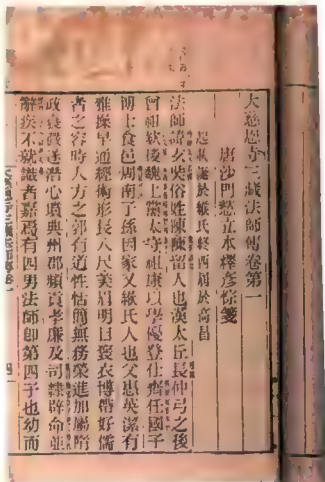 大慈恩寺三藏法師傳卷第一
唐沙門慧立本釋彥悰箋
起載誕於緱氏終西屆於高昌
法師諱玄奘俗姓陳陳留人也漢太丘長仲弓之後
曾祖欽後魏上黨太守祖康以學優登仕齊任國子
博士食邑周南子孫因家又緱氏人也父慧英潔有
雅操早通經術形長八尺美眉明目褒衣博帶好儒
者之容時人方之郭有道性恬簡無務榮進加屬隋
政衰微遂潛心墳典州郡頻貢孝廉及司隸辟命並
辭疾不就識者嘉焉有四男法師即第四子也幼而